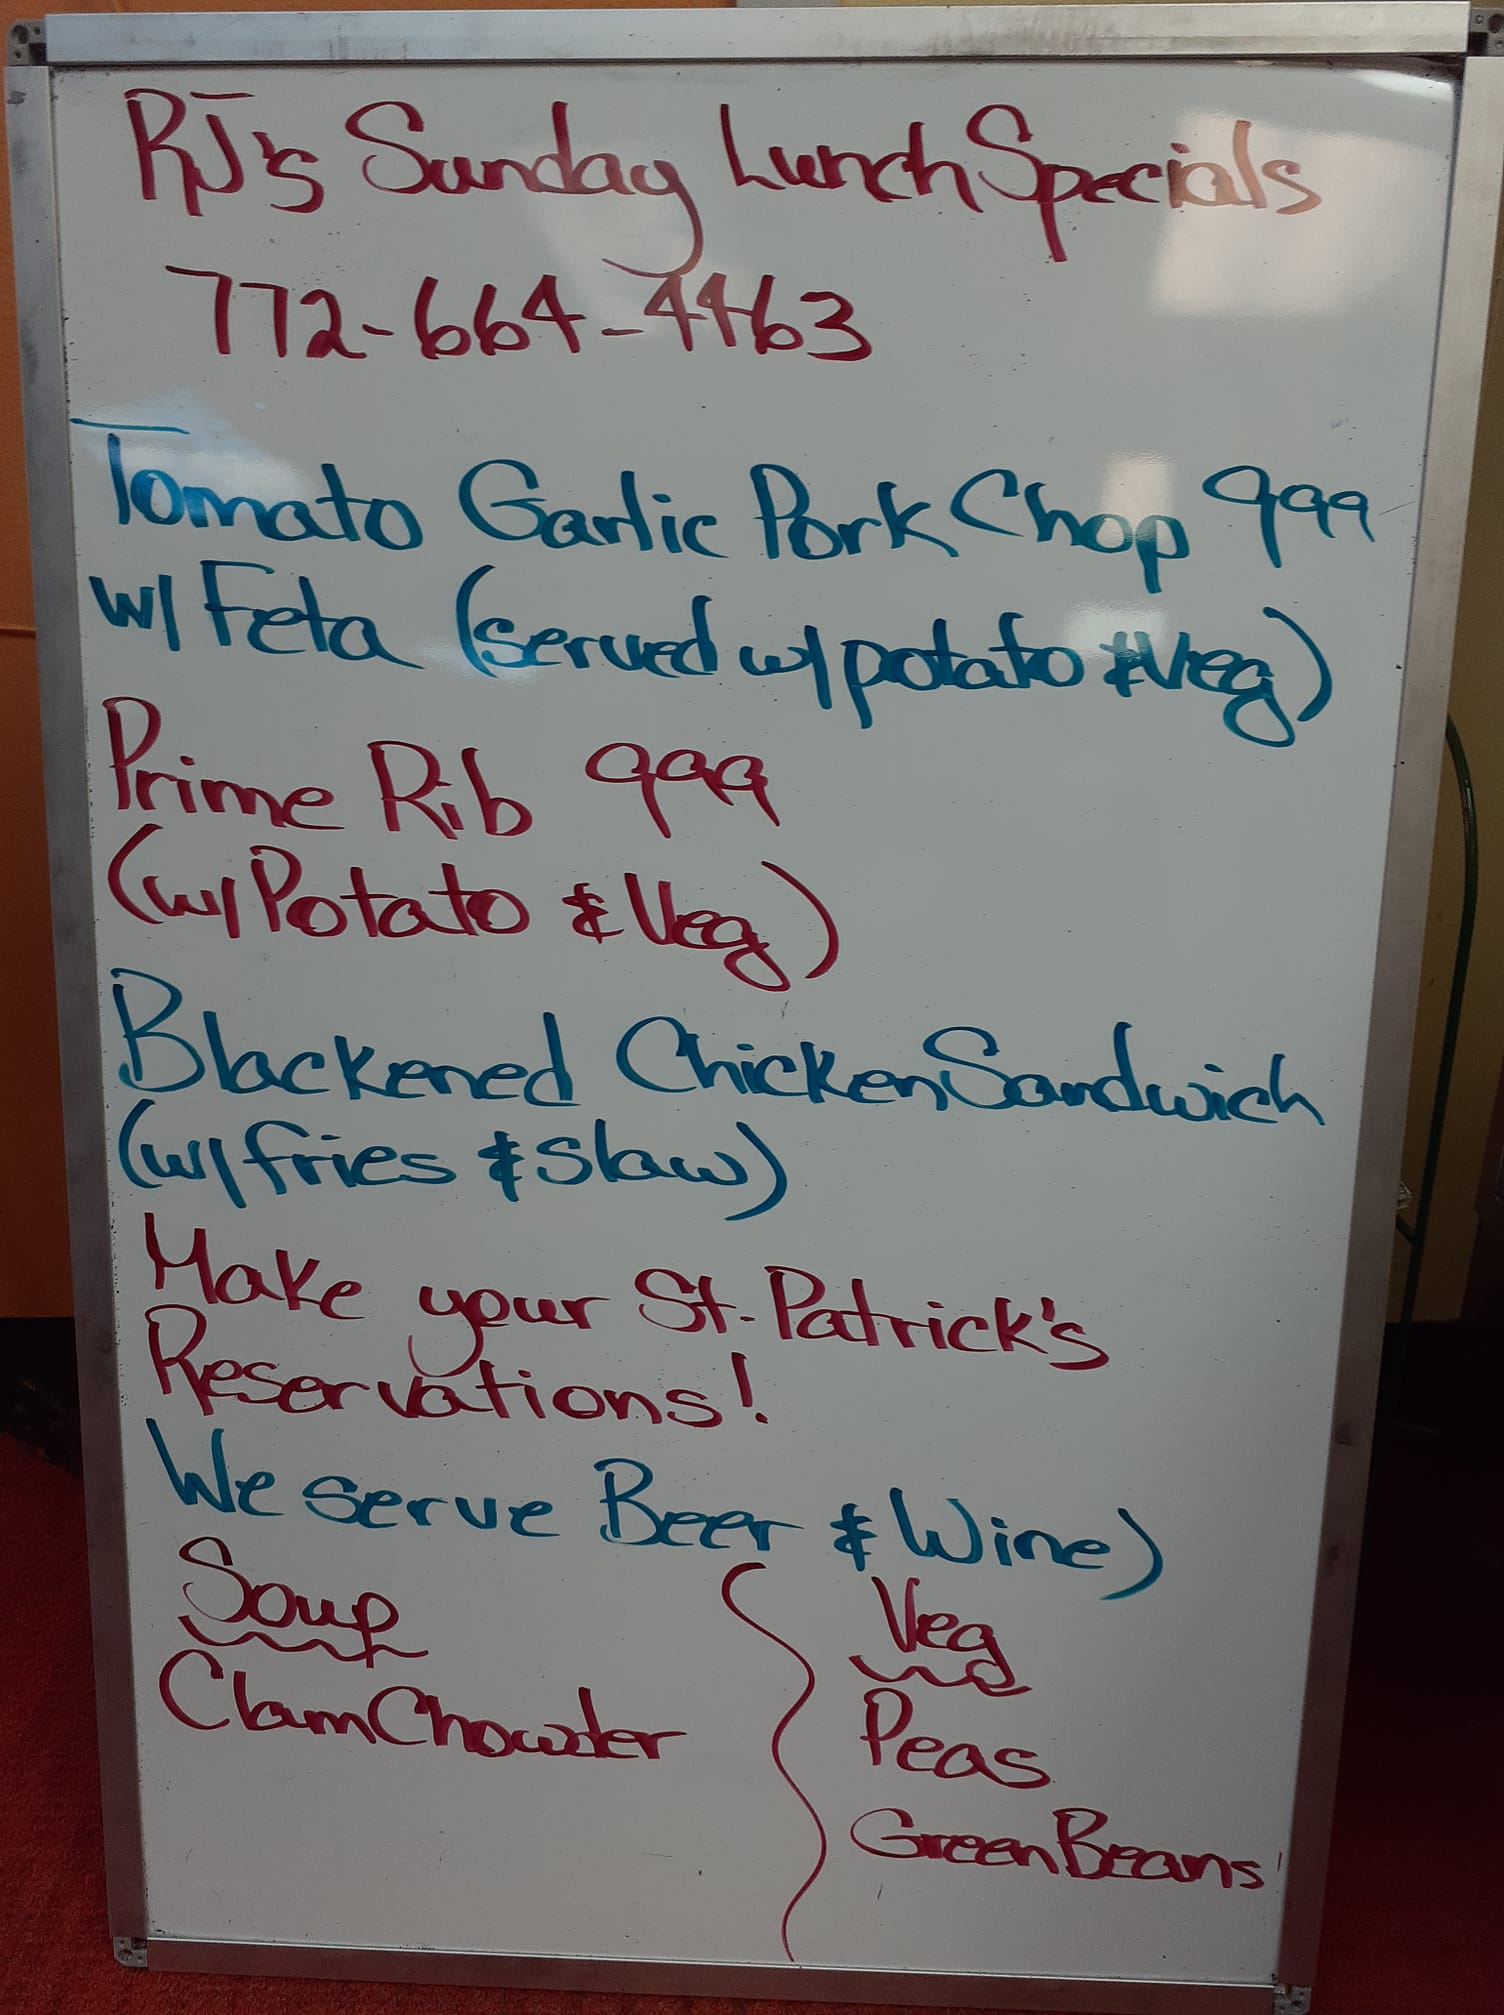 RJ's Sunday Lunch Specials
772-664-4463
Tomato Garlic Pork Chop 999
w/ Feta (served w/ potato & Veg)
Prime Rib 999
(w/ Potato & Veg)
Blackened Chicken Sandwich
(w/ fries & slaw)
Make your St. Patrick's
Reservations!
We serve Beer & Wine)
Soup
Clam Chowder
Veg
Peas
Green Beans